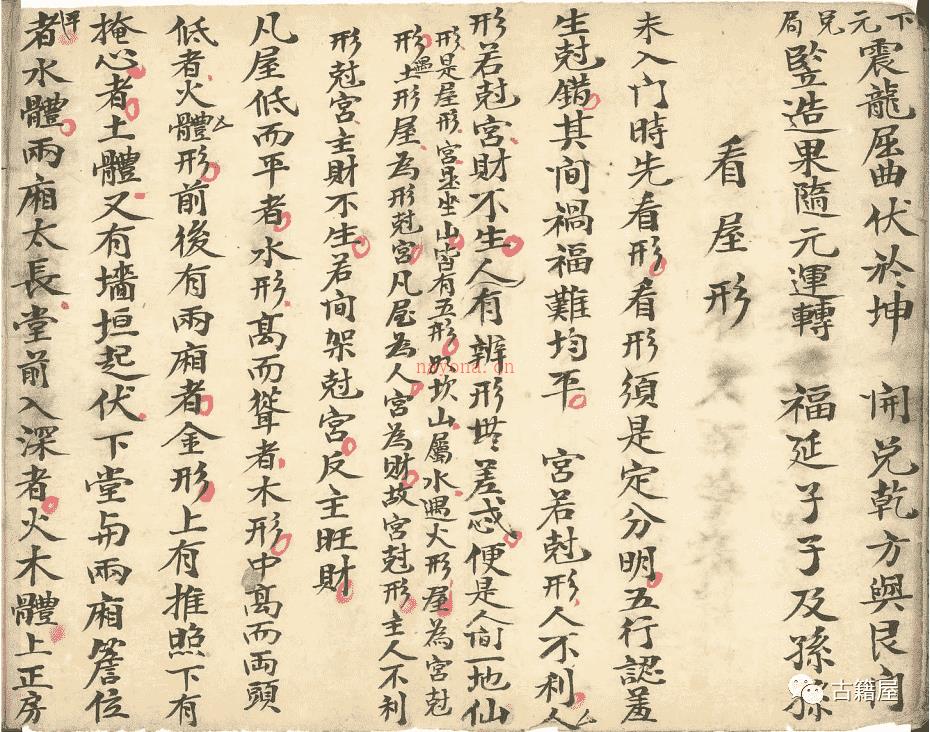 下元兌局
震龍屈曲伏於坤 開兌乾方與艮門
豎造果隨元運轉 福延子子及孫孫
看屋形
未入门時先看形看形須是定分明五行認差
生尅錯其间禍福難均平 宮若尅形人不利人
形若尅宮財不生人有辨形無差惑便是人间一地仙
形是屋形宮是坐山皆有五形如坎山屬水遇火形屋為宮尅
形遇土形屋為形尅宮凡屋為人宮為財故宮尅形主人不利
形尅宮主財不生若间架尅宮反主旺財
凡屋低而平者水形高而聳者木形中高而両頭
低者火體形前後有兩廂者金形上有推照下有
掩心者土體又有墻垣起伏下堂与兩廂簷位
平者水體兩廂太長堂前入深者火木體上正房
nayona.cn
古籍屋